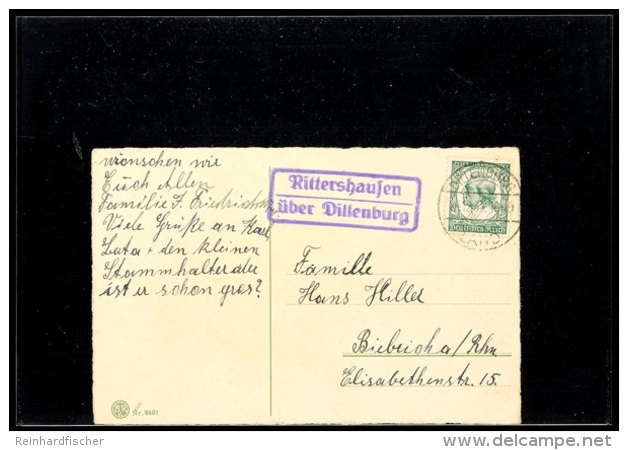 wünschen wir
Euch Allen
Familie J. Friedrich
Viele Grüße an Karl
+ den kleinen
Stammhalter
ist er schon gros?
Rittershausen
über Dillenburg
Deutsches Reich
Familie
Hans Hiller
Biebrich a/Rhn
Elisabethenstr. 15.
Nr. 8401
Reinhardfischer
www.delcampe.net